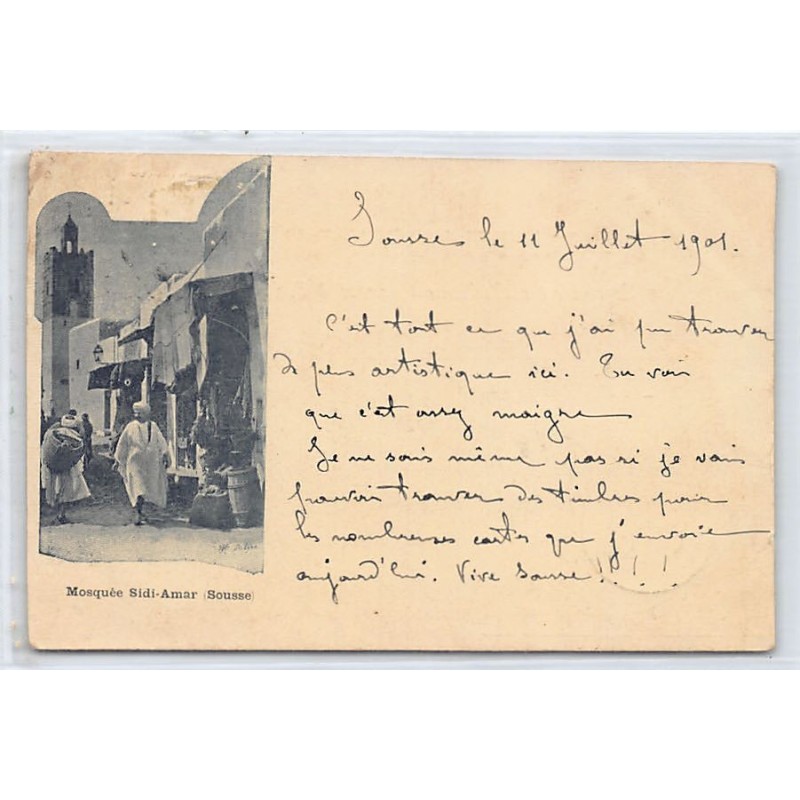 Sousse le 11 Juillet 1901.
C'est tout ce que j'ai pu trouver
de plus artistique ici. Tu vois
que c'est assez maigre
Je ne sais même pas si je vais
pouvoir trouver des timbres pour
les nombreuses cartes que j'envoie
aujourd'hui. Vive Sousse!!!!
Mosquée Sidi-Amar (Sousse)